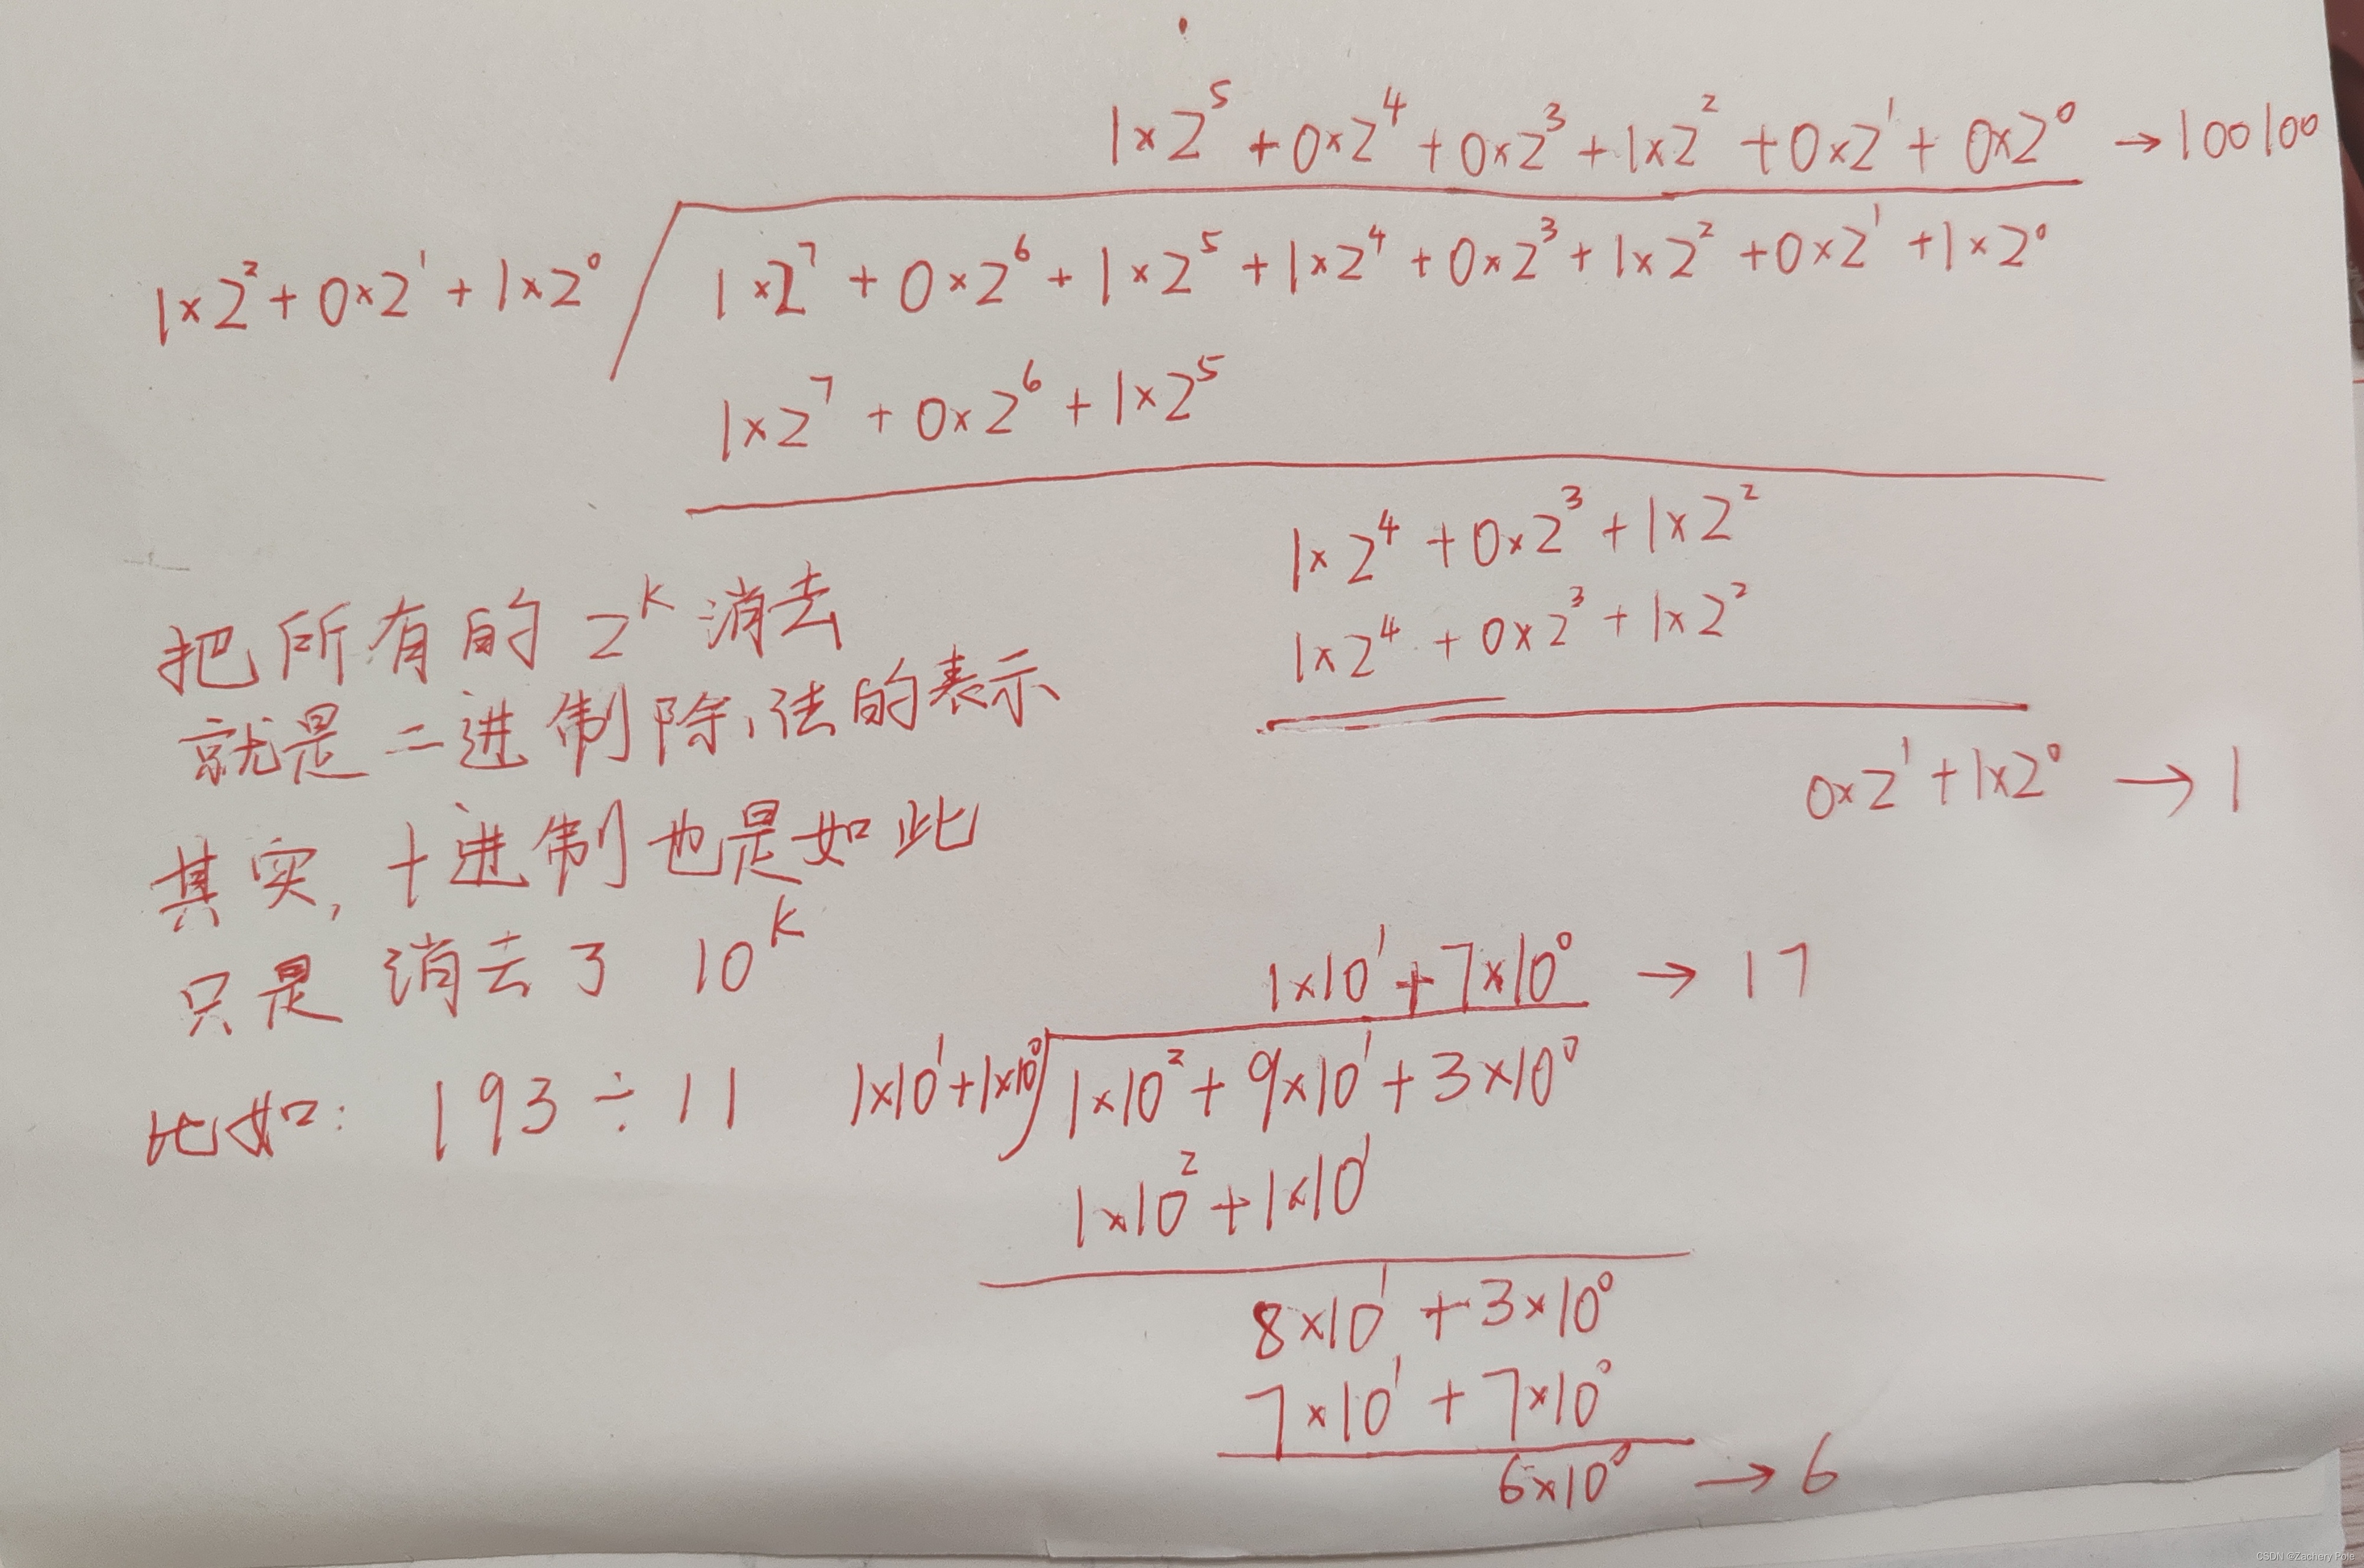 1×2⁵ + 0×2⁴ + 0×2³ + 1×2² + 0×2¹ + 0×2⁰ → 100100
1×2² + 0×2¹ + 1×2⁰
1×2⁷ + 0×2⁶ + 1×2⁵ + 1×2⁴ + 0×2³ + 1×2² + 0×2¹ + 1×2⁰
1×2⁷ + 0×2⁶ + 1×2⁵
1×2⁴ + 0×2³ + 1×2²
1×2⁴ + 0×2³ + 1×2²
0×2¹ + 1×2⁰ → 1
把所有的 2ᴷ 消去
就是二进制除法的表示
其实, 十进制也是如此
只是 消去了 10ᴷ
比如: 193 ÷ 11
1×10¹ + 7×10⁰ → 17
1×10¹ + 1×10⁰
1×10² + 9×10¹ + 3×10⁰
1×10² + 1×10¹
8×10¹ + 3×10⁰
7×10¹ + 7×10⁰
6×10⁰ → 6
CSDN @Zachery Pole